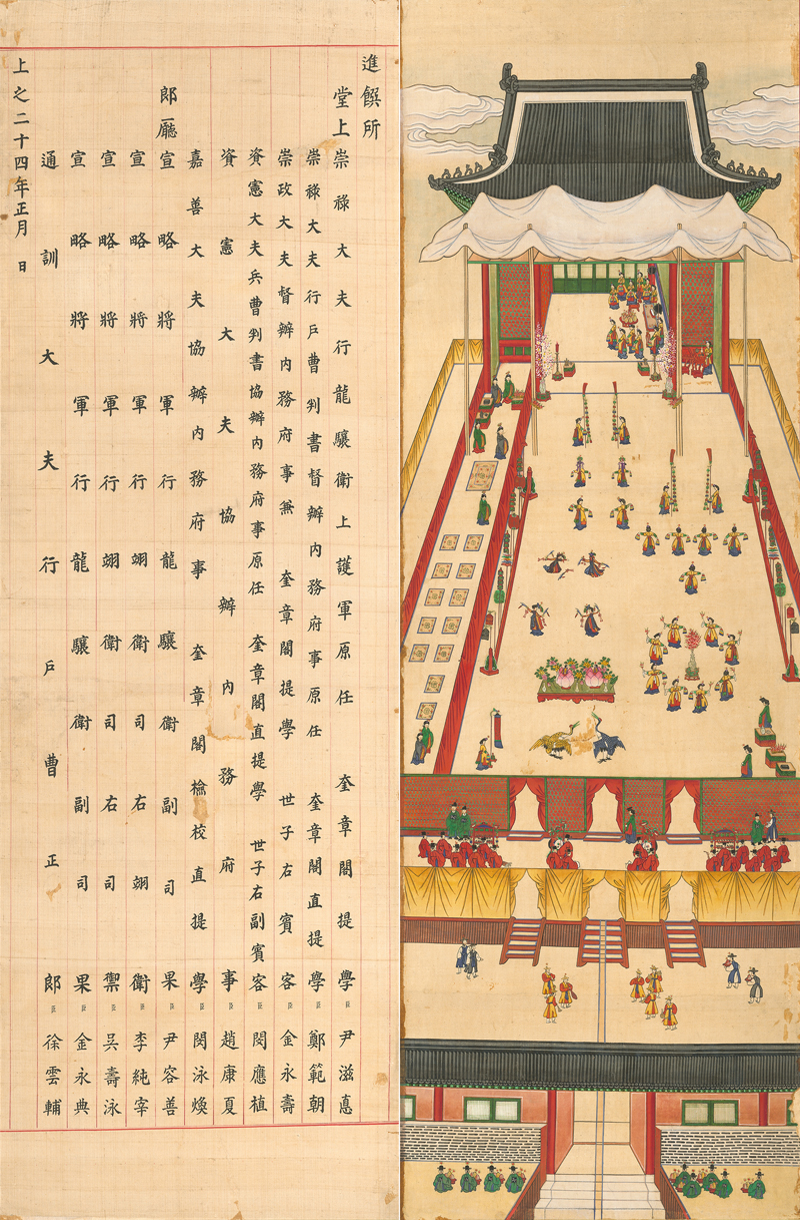 進饌所
堂上 崇祿大夫行龍驤衛上護軍原任 奎章閣提學 臣 尹滋悳
崇祿大夫行戶曹判書督辦內務府事原任 奎章閣直提學 臣 鄭範朝
崇政大夫督辦內務府事兼 奎章閣提學 世子右賓客 臣 金永壽
資憲大夫兵曹判書協辦內務府事原任 奎章閣直提學 世子右副賓客 臣 閔應植
資憲大夫協辦內務府事 臣 趙康夏
嘉善大夫協辦內務府事 奎章閣檢校直提學 臣 閔泳煥
郎廳 宣略將軍行龍驤衛副司果 臣 尹容善
宣略將軍行翊衛司右翊衛 臣 李純宰
宣略將軍行翊衛司右司禦 臣 吳壽泳
宣略將軍行龍驤衛副司果 臣 金永典
通訓大夫行戶曹正郎 臣 徐雲輔
上之二十四年正月 日